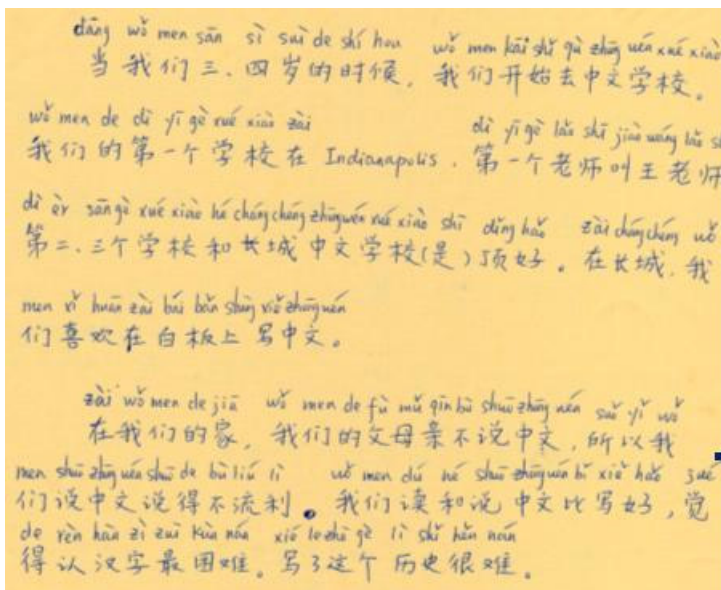 dāng wǒ men sān sì suì de shí hou wǒ men kāi shǐ qù zhōng wén xué xiào
当我们三、四岁的时候,我们开始去中文学校。
wǒ men de dì yī gè xué xiào zài dì yī gè lǎo shī jiào wáng lǎo sh
我们的第一个学校在 Indianapolis. 第一个老师叫王老师
dì èr sān gè xué xiào hé cháng chéng zhōng wén xué xiào shì dǐng hǎo zài cháng chéng wǒ
第二、三个学校和长城中文学校(是)顶好。在长城,我
men xǐ huān zài bái bǎn shàng xiě zhōng wén
们喜欢在白板上写中文。
zài wǒ men de jiā wǒ men de fù mǔ qīn bù shuō zhōng wén suǒ yǐ wǒ
在我们的家,我们的父母亲不说中文,所以我
men shuō zhōng wén shuō de bù liú lì wǒ men dú hé shuō zhōng wén bǐ xiě hǎo jué
们说中文说得不流利。我们读和说中文比写好,觉
de rèn hàn zì zuì kùn nán xiě le zhè gè lì shǐ hěn nán
得认汉字最困难。写了这个历史很难。